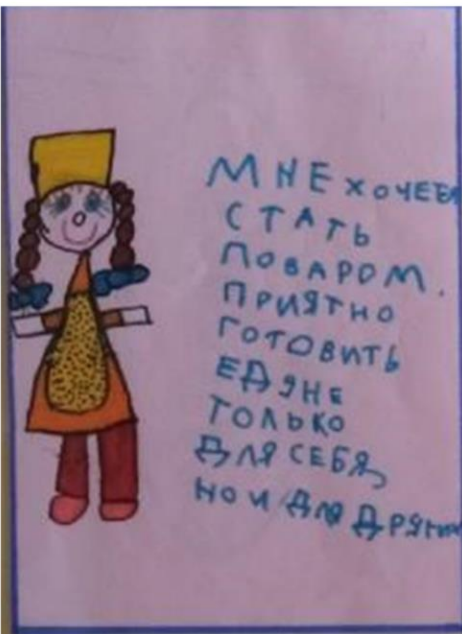 МНЕ хОЧЕТ
СТАТЬ
ПОВАРОМ.
ПРИЯТНО
ГОТОВИТЬ
ЕДЯ НЕ
ТОЛЬКО
ДЛЯ СЕБЯ,
НО И ДЛЯ